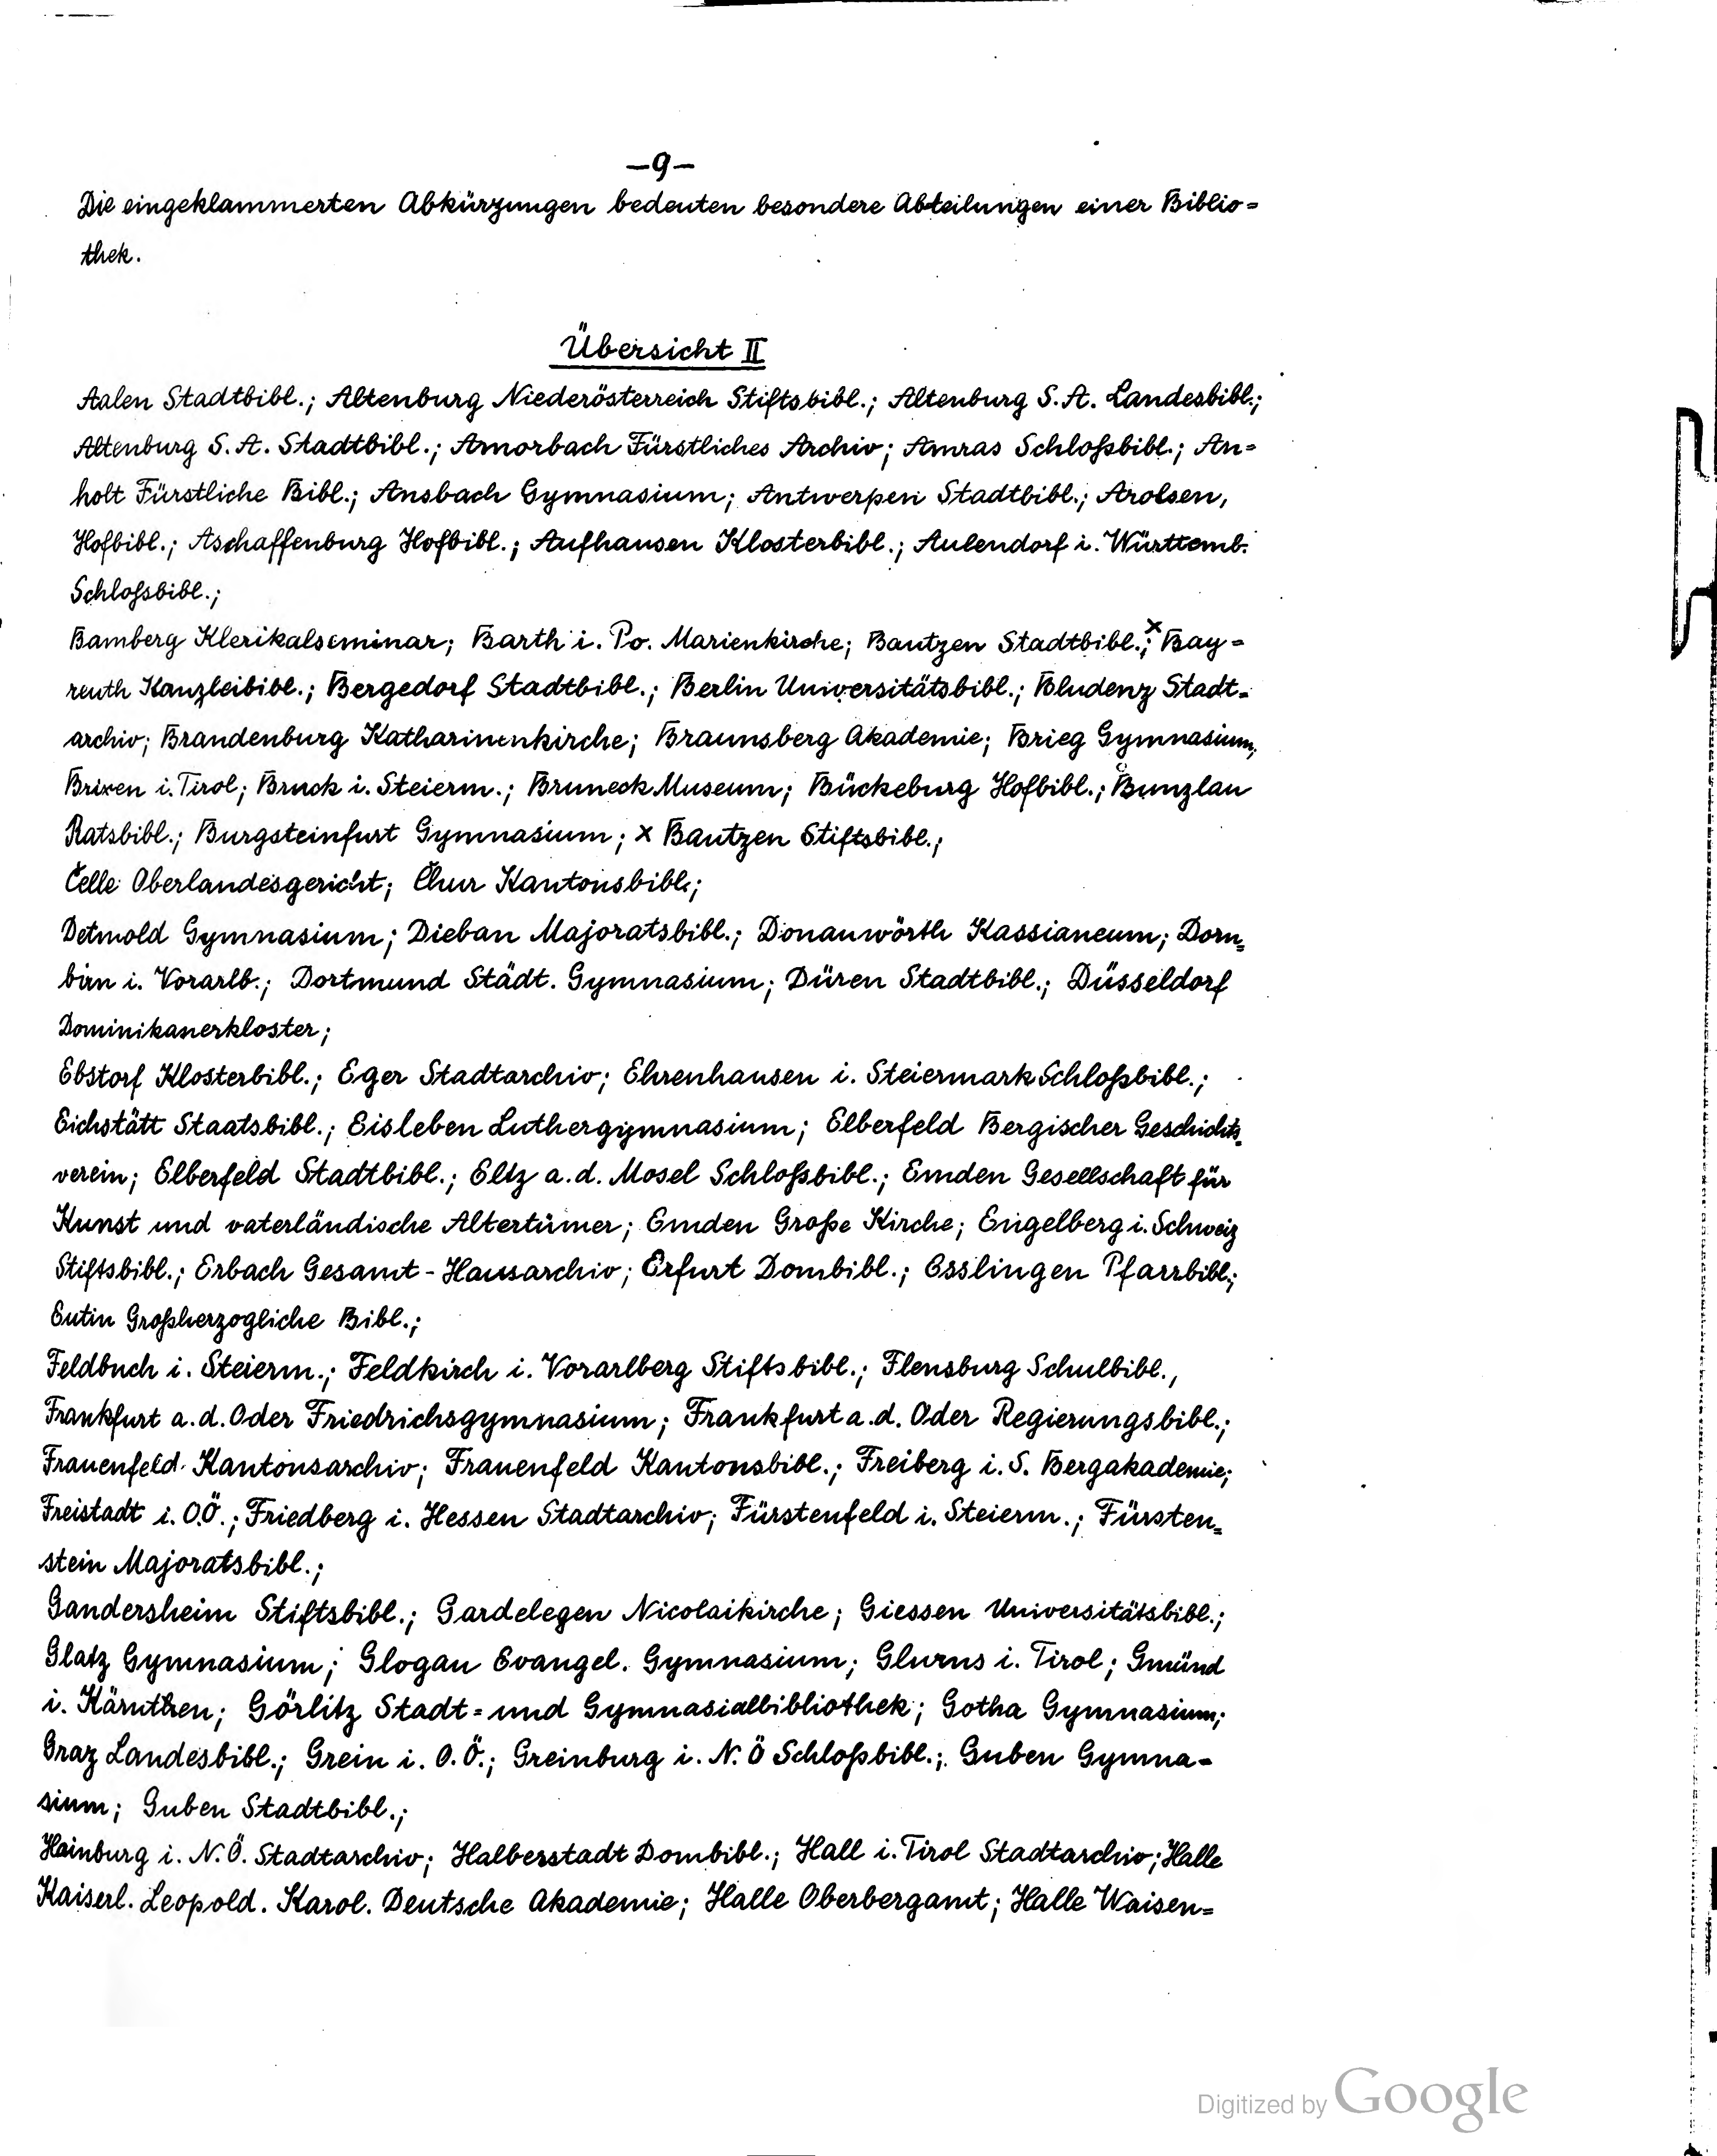 –9–
Die eingeklammerten Abkürzungen bedeuten besondere Abteilungen einer Biblio=
thek.
Übersicht II
Aalen Stadtbibl.; Altenburg Niederösterreich Stiftsbibl.; Altenburg S. A. Landesbibl.;
Altenburg S. A. Stadtbibl.; Amorbach Fürstliches Archiv; Amras Schloßbibl.; An=
holt Fürstliche Bibl.; Ansbach Gymnasium; Antwerpen Stadtbibl.; Arolsen,
Hofbibl.; Aschaffenburg Hofbibl.; Aufhausen Klosterbibl.; Aulendorf i. Württemb.
Schloßbibl.;
Bamberg Klerikalseminar; Barth i. Po. Marienkirche; Bautzen Stadtbibl.;x Bay=
reuth Kanzleibibl.; Bergedorf Stadtbibl.; Berlin Universitätsbibl.; Bludenz Stadt=
archiv; Brandenburg Katharinenkirche; Braunsberg Akademie; Brieg Gymnasium,
Brixen i. Tirol; Bruck i. Steierm.; Bruneck Museum; Bückeburg Hofbibl.; Bunzlau
Ratsbibl.; Burgsteinfurt Gymnasium; x Bautzen Stiftsbibl.;
Celle Oberlandesgericht; Chur Kantonsbibl.;
Detmold Gymnasium; Dieban Majoratsbibl.; Donauwörth Kassianeum; Dorn=
birn i. Vorarlb.; Dortmund Städt. Gymnasium; Düren Stadtbibl.; Düsseldorf
Dominikanerkloster;
Ebstorf Klosterbibl.; Eger Stadtarchiv; Ehrenhausen i. Steiermark Schloßbibl.;
Eichstätt Staatsbibl.; Eisleben Luthergymnasium; Elberfeld Bergischer Geschichts=
verein; Elberfeld Stadtbibl.; Eltz a. d. Mosel Schloßbibl.; Emden Gesellschaft für
Kunst und vaterländische Altertümer; Emden Große Kirche; Engelberg i. Schweiz
Stiftsbibl.; Erbach Gesamt-Hausarchiv; Erfurt Dombibl.; Esslingen Pfarrbibl.;
Eutin Großherzogliche Bibl.;
Feldbach i. Steierm.; Feldkirch i. Vorarlberg Stiftsbibl.; Flensburg Schulbibl.,
Frankfurt a. d. Oder Friedrichsgymnasium; Frankfurt a. d. Oder Regierungsbibl.;
Frauenfeld Kantonsarchiv; Frauenfeld Kantonsbibl.; Freiberg i. S. Bergakademie;
Freistadt i. O.Ö.; Friedberg i. Hessen Stadtarchiv; Fürstenfeld i. Steierm.; Fürsten=
stein Majoratsbibl.;
Gandersheim Stiftsbibl.; Gardelegen Nicolaikirche; Giessen Universitätsbibl.;
Glatz Gymnasium; Glogau Evangel. Gymnasium; Glurns i. Tirol; Gmünd
i. Kärnthen; Görlitz Stadt= und Gymnasialbibliothek; Gotha Gymnasium;
Graz Landesbibl.; Grein i. O. Ö.; Greinburg i. N. Ö Schloßbibl.; Guben Gymna=
sium; Guben Stadtbibl.;
Hainburg i. N. Ö. Stadtarchiv; Halberstadt Dombibl.; Hall i. Tirol Stadtarchiv; Halle
Kaiserl. Leopold. Karol. Deutsche Akademie; Halle Oberbergamt; Halle Waisen=
Digitized by Google